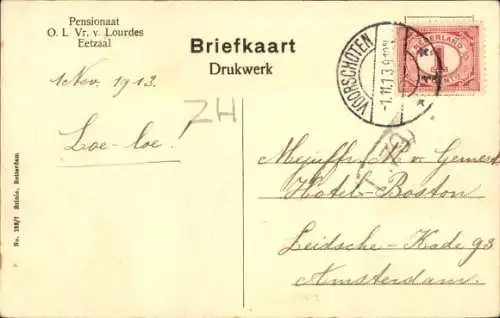 Pensionaat
O. L. Vr. v. Lourdes
Eetzaal
Briefkaart
Drukwerk
NEDERLAND
1
VOORSCHOTEN
-1.11.13.9
1 Nov. 1913.
ZH
Loe-loe!
Mejuffr. M. v. Gemert
Hotel-Boston
Leidsche-Kade 93
Amsterdam.
No. 198/7 Brinio, Rotterdam.